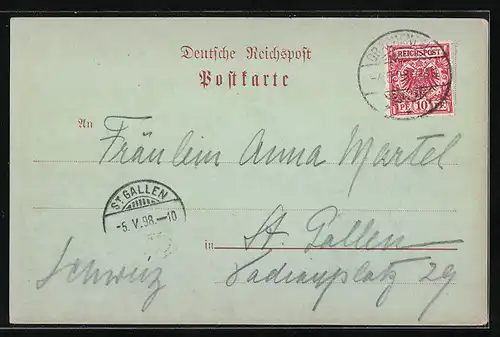 Deutsche Reichspost
Postkarte
REICHSPOST
10 PF
An
Fräulein Anna Martel
ST. GALLEN
-5.V.98.-10
in St. Gallen
Schweiz
Vadianplatz 29